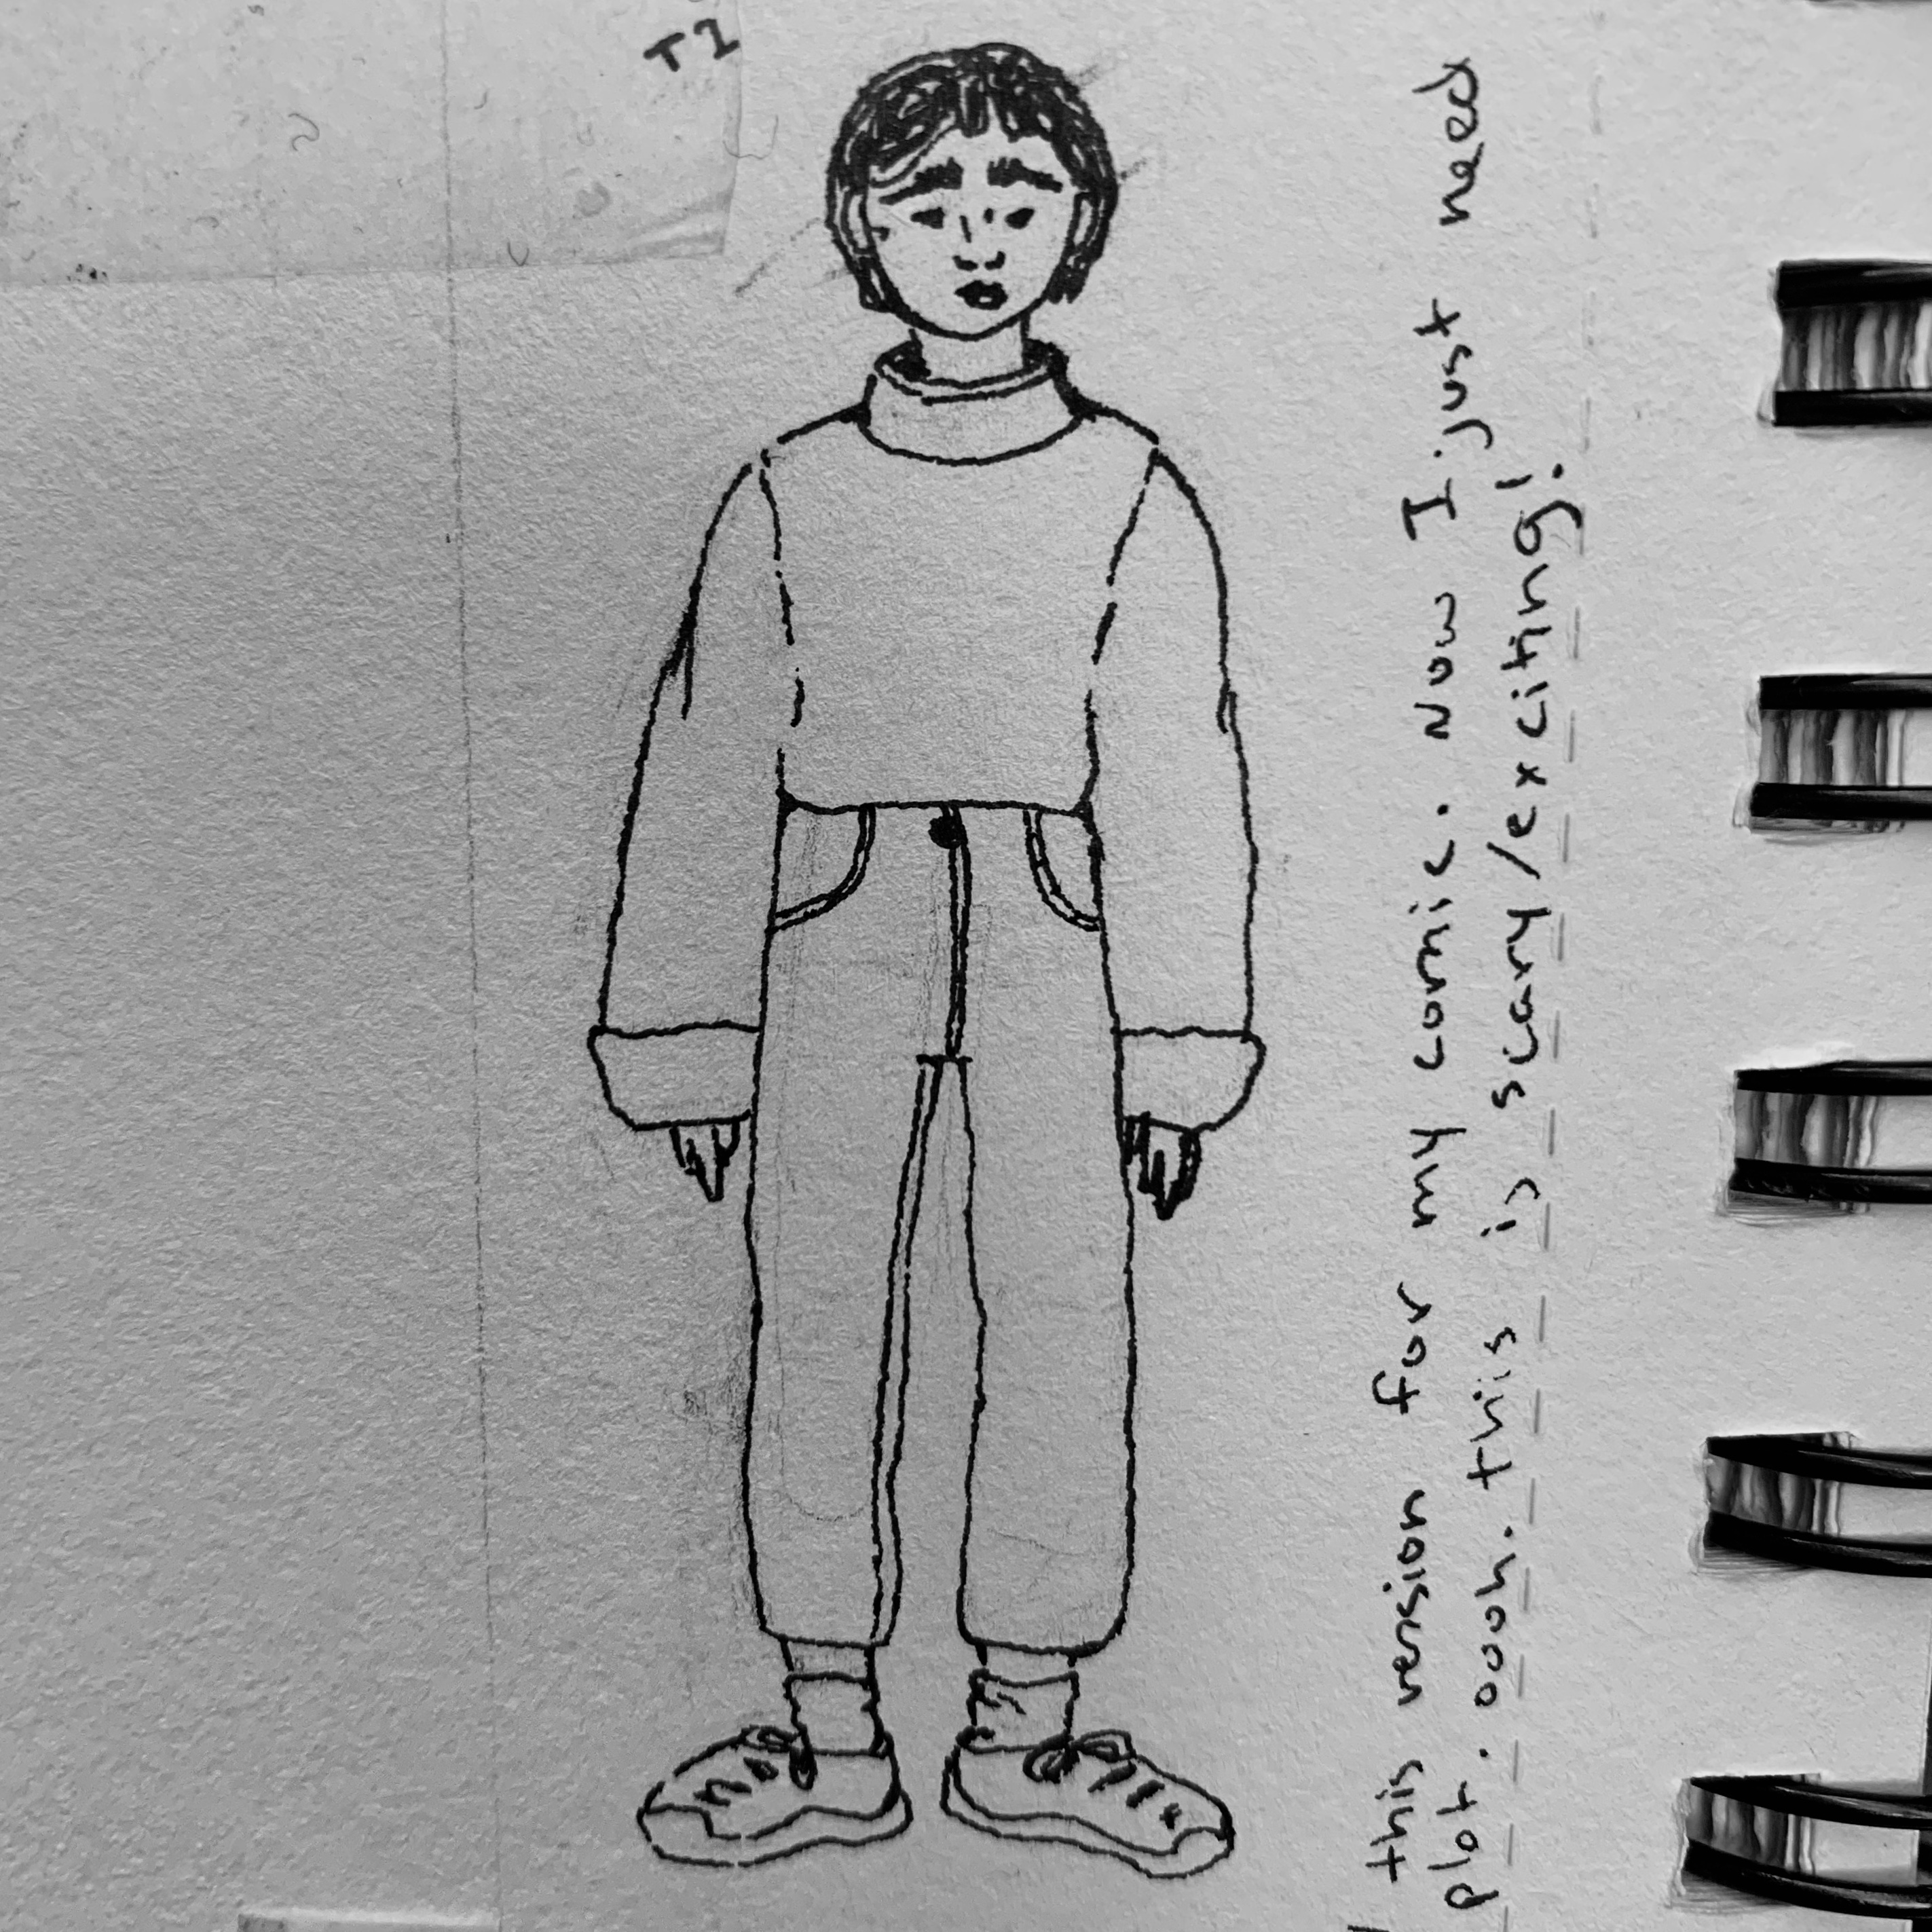 TI
this version for my comic. Now I just need
plot. oooh. this is scary/exciting!